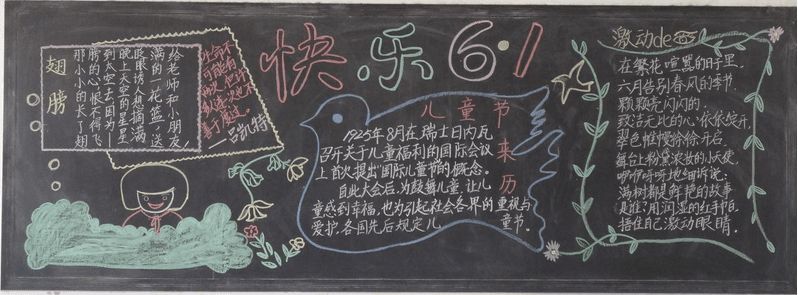 快乐6·1
翅膀
给老师和小朋友，
满满的一花篮，送
眨眼诱人想摘满
晚上天空的星星
到太空去因为一
膀的心，恨不得飞
那小小的长了翅
生命不
可能有
两次，也许
一吕凯特
儿童节来历
1925年8月在瑞士日内瓦
召开关于儿童福利的国际会议
上首次提出国际儿童节的概念。
自此大会后，为鼓舞儿童，让儿
童感到幸福，也为引起社会各界的重视与
爱护，各国先后规定儿童节。
激动de
在繁花喧嚣的日子里，
六月告别春风的季节
颗颗亮闪闪的，
致洁无比的心，依依绽开，
翠色帷幔徐徐开启，
舞台上粉黛浓妆的小天使，
咿咿呀呀地细诉说：
满树都是鲜艳的故事
是谁：用润湿的红手帕，
捂住自己激动眼睛。